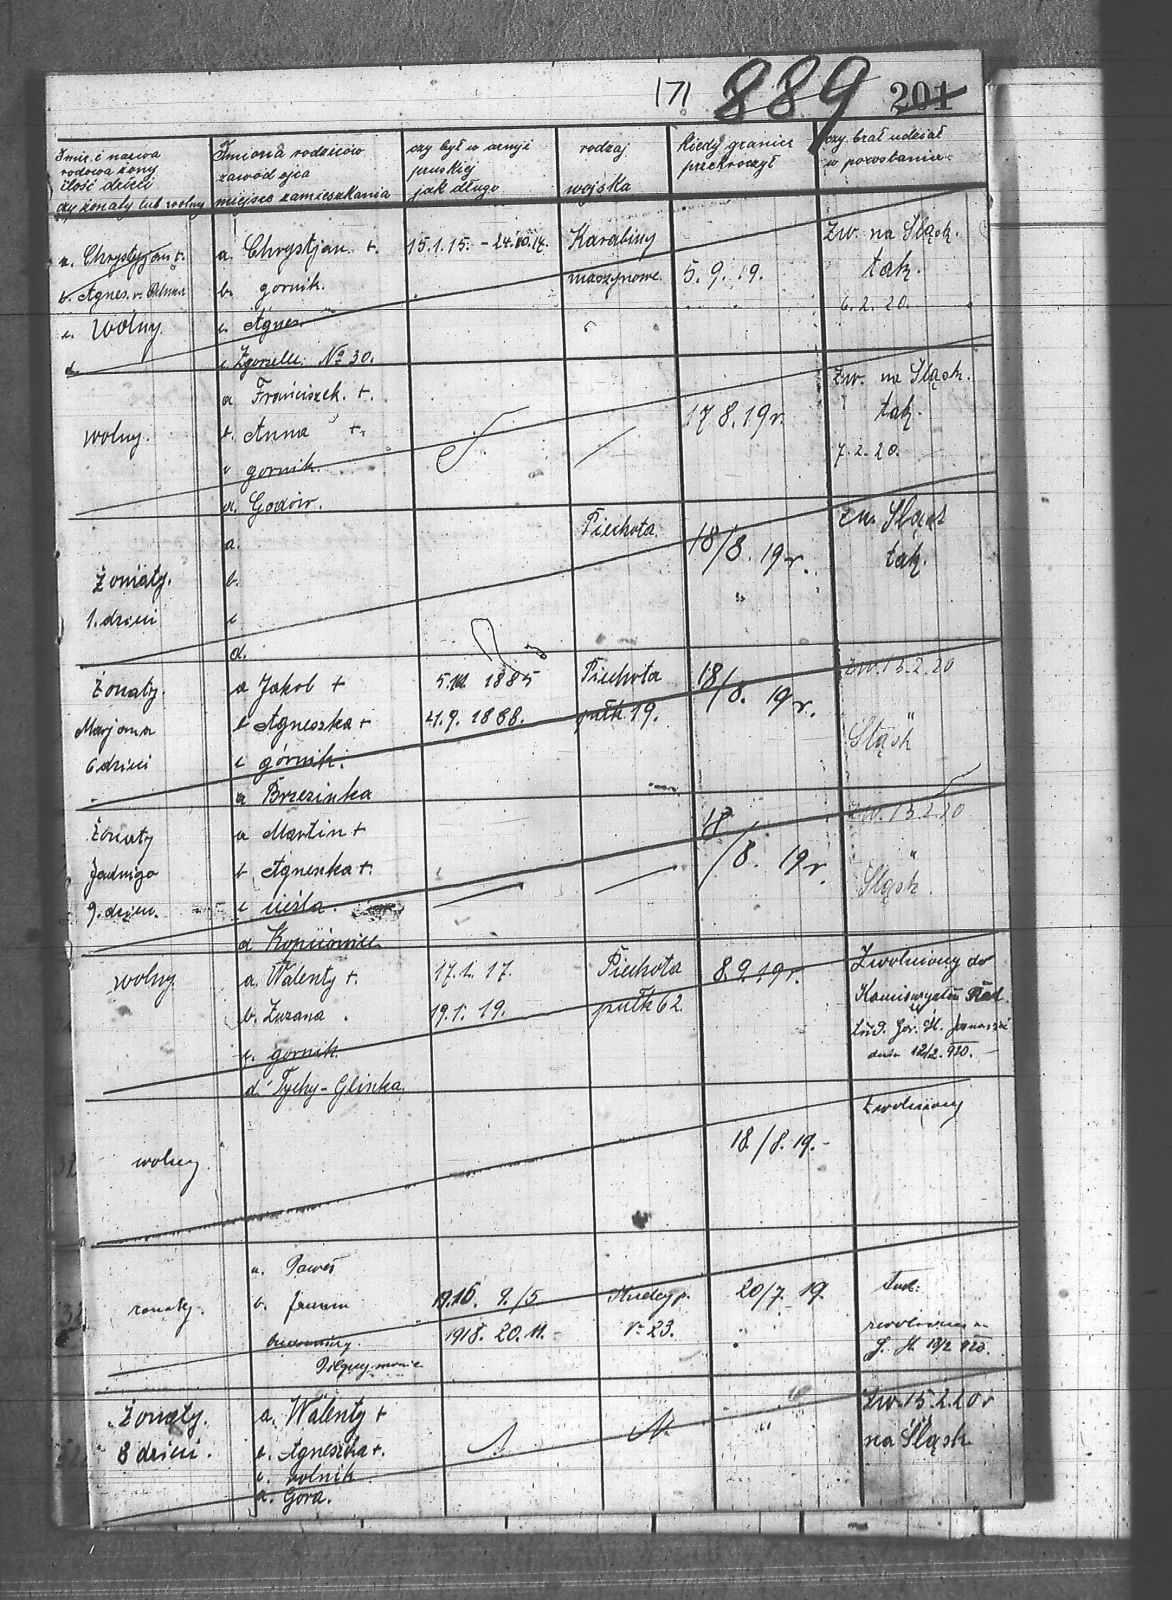 171 889 201
Imię i nazwa
rodowa żony
ilość dzieci
czy żonaty lub wolny
Imiona rodziców
zawód ojca
miejsce zamieszkania
czy był w armji
pruskiej
jak długo
rodzaj
wojska
kiedy granicę
przekroczył
czy brał udział
w powstaniu
a. Chrystjan +.
b. Agnes.
c. Wolny
d.
a. Chrystjan +.
b. gornik.
c. Agnes.
Zgorzelec No 30.
15.1.15. - 24.10.17.
Karabiny
maszynowe.
5.9.19.
Zw. na Śląsk.
tak.
6.2.20.
wolny.
a Franciszek. +.
b. Anna +.
c gornik.
d. Godów.
17 8.19r.
Zw. na Śląsk.
tak.
7.2.20.
Żonaty.
1. dzieci
a.
b.
c
d.
Piechota.
18/8. 19r.
"
Śląsk
tak.
Żonaty.
Marjanna
6 dzieci
a Jakob +
b Agneszka +
c górnik.
d Brzezinka
1885
1888.
Piechota
pułk 19.
18/8. 19r.
Zw. 15.2.20
"
Śląsk
Żonaty
Jadwiga
9. dzieci.
a Martin +
b Agneszka +.
c cieśla.
d Kopciowice
18/8. 19r.
Zw. 15.2.20
"
Śląsk
wolny
a. Walenty +.
b. Zuzana.
c. gornik
d. Tychy-Glinka.
17.1. 17.
19.1. 19.
Piechota
pułk 62.
8.9.19r.
Zwolniony do
dnia 12/2. 920.
wolny.
18./8.19.-
Zwolniony
żonaty.
a. Paweł
b.
1916. 9./5
1918. 20.11.
No 23.
20/7. 19.
Żonaty.
8 dzieci.
a. Walenty +
b. Agneszka +.
c. rolnik
d. Góra.
"
Zw. 15.2.20 r
na Śląsk